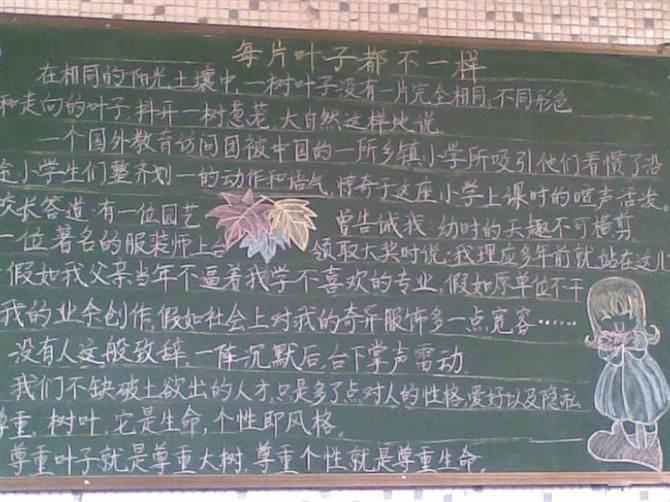 每片叶子都不一样
在相同的阳光土壤中,一树叶子没有一片完全相同。不同形色
和走向的叶子,抖开一树葱茏,大自然这样地说
一个国外教育访问团被中国的一所乡镇小学所吸引他们看惯了沿
小学生们整齐划一的动作和 惊奇于这座小学上课时的喧声活发。
校长答道:有一位园艺 曾告诫我:幼时的天趣不可横剪
一位著名的服装师上台 领取大奖时说:我理应多年前就站在这儿
假如我父亲当年不逼着我学不喜欢的专业,假如原单位不干
我的业余创作,假如社会上对我的奇异服饰多一点宽容……
没有人这般致辞。一阵沉默后,台下掌声雷动。
我们不缺破土欲出的人才,只是多了点对人的性格,爱好以及隐私
尊重。树叶,它是生命,个性即风格。
尊重叶子就是尊重大树,尊重个性就是尊重生命。